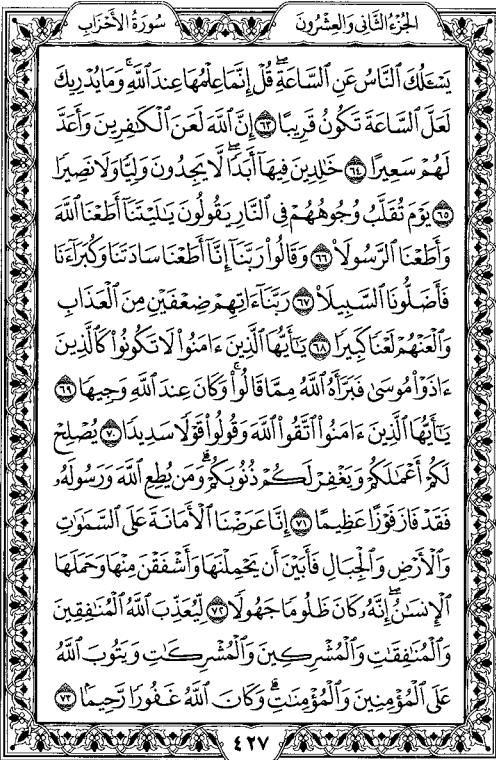 الجزء الثاني والعشرون
سورة الأحزاب
يَسْـَٔلُكَ ٱلنَّاسُ عَنِ ٱلسَّاعَةِۖ قُلْ إِنَّمَا عِلْمُهَا عِندَ ٱللَّهِۚ وَمَا يُدْرِيكَ
لَعَلَّ ٱلسَّاعَةَ تَكُونُ قَرِيبًا ٦٣ إِنَّ ٱللَّهَ لَعَنَ ٱلْكَٰفِرِينَ وَأَعَدَّ
لَهُمْ سَعِيرًا ٦٤ خَٰلِدِينَ فِيهَآ أَبَدًاۖ لَّا يَجِدُونَ وَلِيًّا وَلَا نَصِيرًا
٦٥ يَوْمَ تُقَلَّبُ وُجُوهُهُمْ فِي ٱلنَّارِ يَقُولُونَ يَٰلَيْتَنَآ أَطَعْنَا ٱللَّهَ
وَأَطَعْنَا ٱلرَّسُولَا۠ ٦٦ وَقَالُوا۟ رَبَّنَآ إِنَّآ أَطَعْنَا سَادَتَنَا وَكُبَرَآءَنَا
فَأَضَلُّونَا ٱلسَّبِيلَا۠ ٦٧ رَبَّنَآ ءَاتِهِمْ ضِعْفَيْنِ مِنَ ٱلْعَذَابِ
وَٱلْعَنْهُمْ لَعْنًا كَبِيرًا ٦٨ يَٰٓأَيُّهَا ٱلَّذِينَ ءَامَنُوا۟ لَا تَكُونُوا۟ كَٱلَّذِينَ
ءَاذَوْا۟ مُوسَىٰ فَبَرَّأَهُ ٱللَّهُ مِمَّا قَالُوا۟ۚ وَكَانَ عِندَ ٱللَّهِ وَجِيهًا ٦٩
يَٰٓأَيُّهَا ٱلَّذِينَ ءَامَنُوا۟ ٱتَّقُوا۟ ٱللَّهَ وَقُولُوا۟ قَوْلًا سَدِيدًا ٧٠ يُصْلِحْ
لَكُمْ أَعْمَٰلَكُمْ وَيَغْفِرْ لَكُمْ ذُنُوبَكُمْۗ وَمَن يُطِعِ ٱللَّهَ وَرَسُولَهُۥ
فَقَدْ فَازَ فَوْزًا عَظِيمًا ٧١ إِنَّا عَرَضْنَا ٱلْأَمَانَةَ عَلَى ٱلسَّمَٰوَٰتِ
وَٱلْأَرْضِ وَٱلْجِبَالِ فَأَبَيْنَ أَن يَحْمِلْنَهَا وَأَشْفَقْنَ مِنْهَا وَحَمَلَهَا
ٱلْإِنسَٰنُۖ إِنَّهُۥ كَانَ ظَلُومًا جَهُولًا ٧٢ لِّيُعَذِّبَ ٱللَّهُ ٱلْمُنَٰفِقِينَ
وَٱلْمُنَٰفِقَٰتِ وَٱلْمُشْرِكِينَ وَٱلْمُشْرِكَٰتِ وَيَتُوبَ ٱللَّهُ
عَلَى ٱلْمُؤْمِنِينَ وَٱلْمُؤْمِنَٰتِۗ وَكَانَ ٱللَّهُ غَفُورًا رَّحِيمًۢا ٧٣
٤٢٧